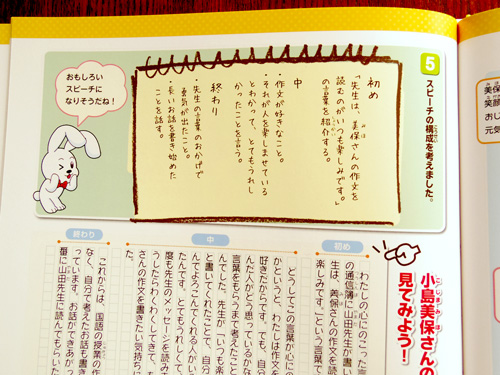 5 スピーチの構成を考えました。
初め
「先生は、美保さんの作文を
読むのが、いつも楽しみです。」
の言葉を紹介する。
中
・作文が好きなこと。
・それが人を楽しませている
とわかって、とてもうれし
かったことを言う。
終わり
・先生の言葉のおかげで
勇気が出たこと。
・長いお話を書き始めた
ことを話す。
おもしろい
スピーチに
なりそうだね!
小島美保さんの
見てみよう!
初め
わたしの心にのこった言
の通信簿に山田先生が書い
生は、美保さんの作文を読
楽しみです。」という言葉で
中
どうしてこの言葉が心に
かというと、わたしは作文
好きだからです。でも、自分
んだ人がどう思っているかな
言葉をもらうまで考えたこと
んでした。先生が「いつも楽
と書いてくれたことで、自分
んでよろこんでくれる人がい
たんです。とてもうれしくて、
度も先生のメッセージを読み
うしたらわくわくしてきて、も
さんの作文を書きたい気持ち
た。
終わり
これからは、国語の授業の作
なく、自分で考えたお話も書き
っています。お話ができあがっ
番に山田先生に読んでもらいた
美保
笑顔
おし
元気